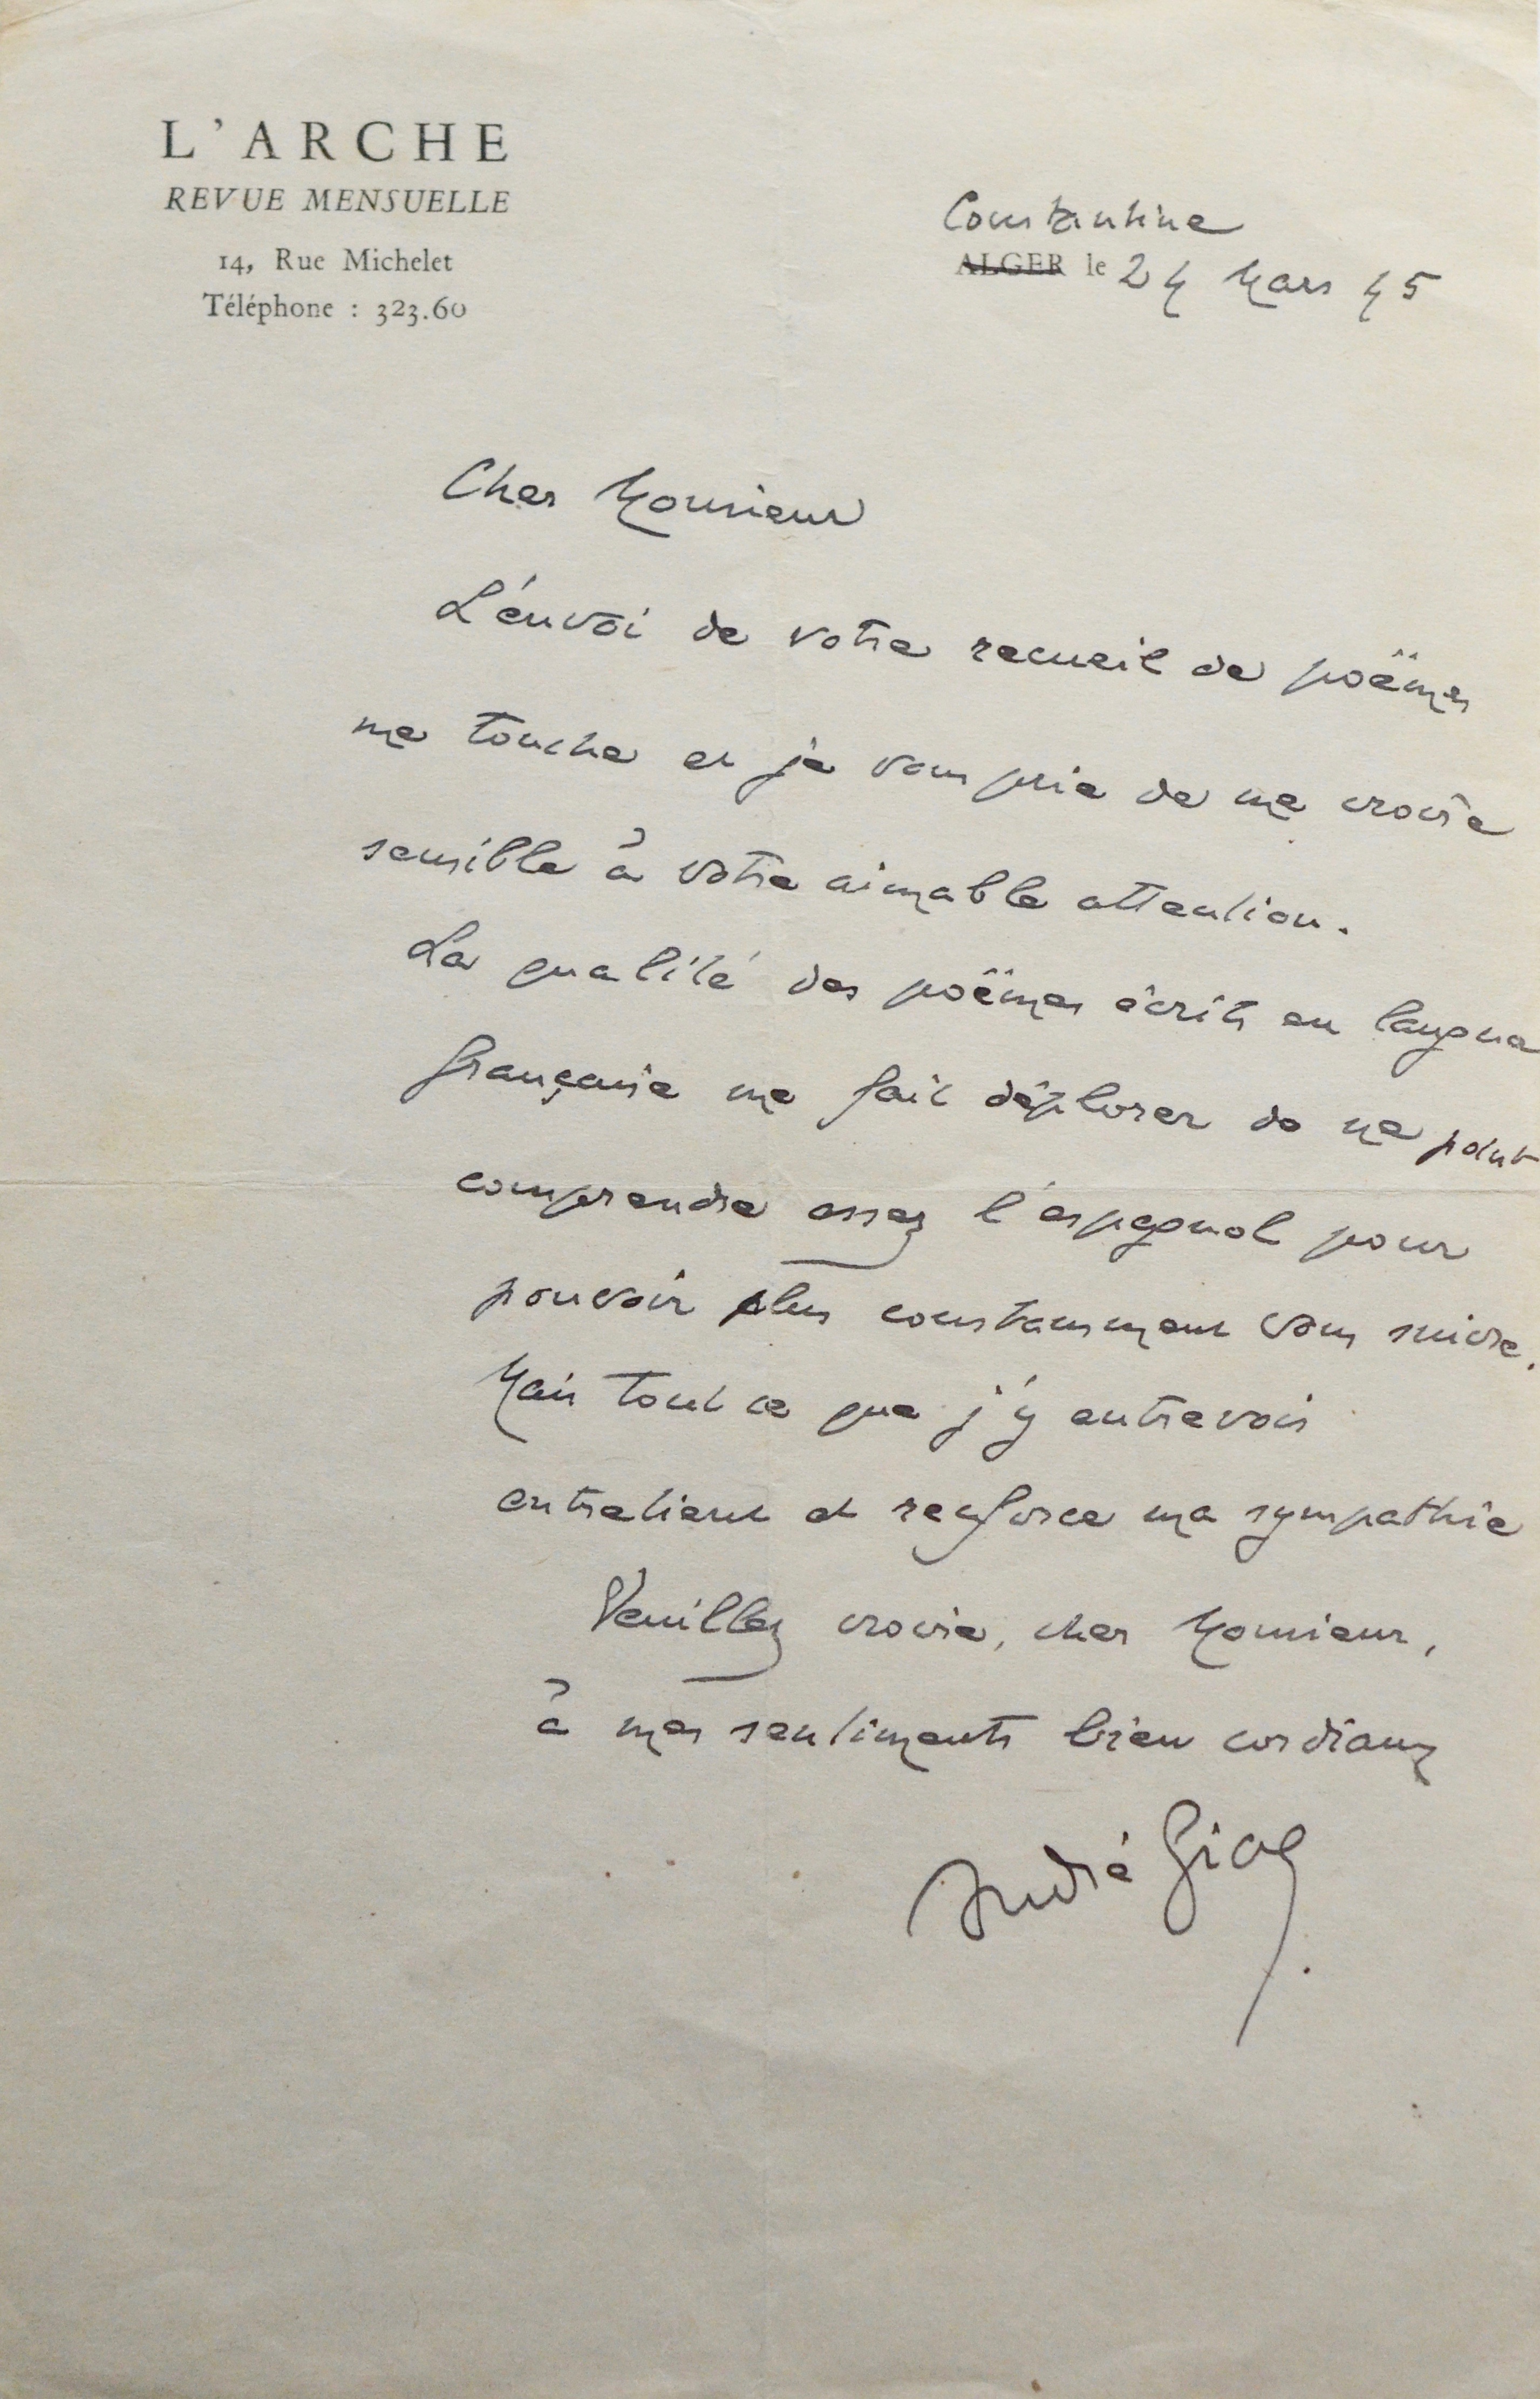 L'ARCHE
REVUE MENSUELLE
14, Rue Michelet
Téléphone : 323.60
Constantine
ALGER le 24 Mars 45
Cher Monsieur
L'envoi de votre recueil de poëmes
me touche et je vous prie de me croire
sensible à votre aimable attention.
La qualité des poëmes écrits en langue
française me fait déplorer de ne point
comprendre assez l'espagnol pour
pouvoir plus constamment vous suivre.
Mais tout ce que j'y entrevois
entretient et renforce ma sympathie
Veuillez croire, cher Monsieur,
à mes sentiments bien cordiaux
André Gide